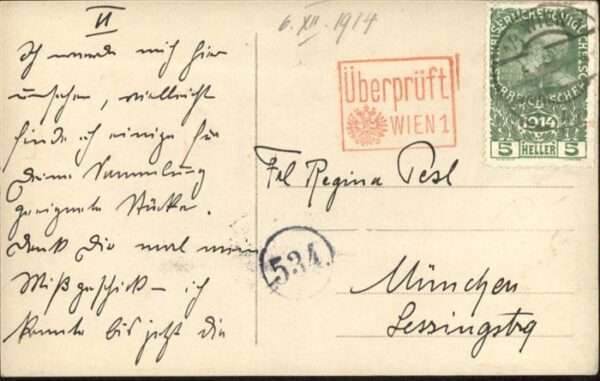 II
Ich werde mich hier
umsehen, vielleicht
finde ich einige für
Deine Sammlung
geeignete Stücke.
Denk Dir mal mein
Mißgeschick – ich
konnte bis jetzt die
6. XII. 1914
Überprüft
WIEN 1
1914
5 HELLER 5
Frl Regina Pesl
534.
München
Lessingstr 9